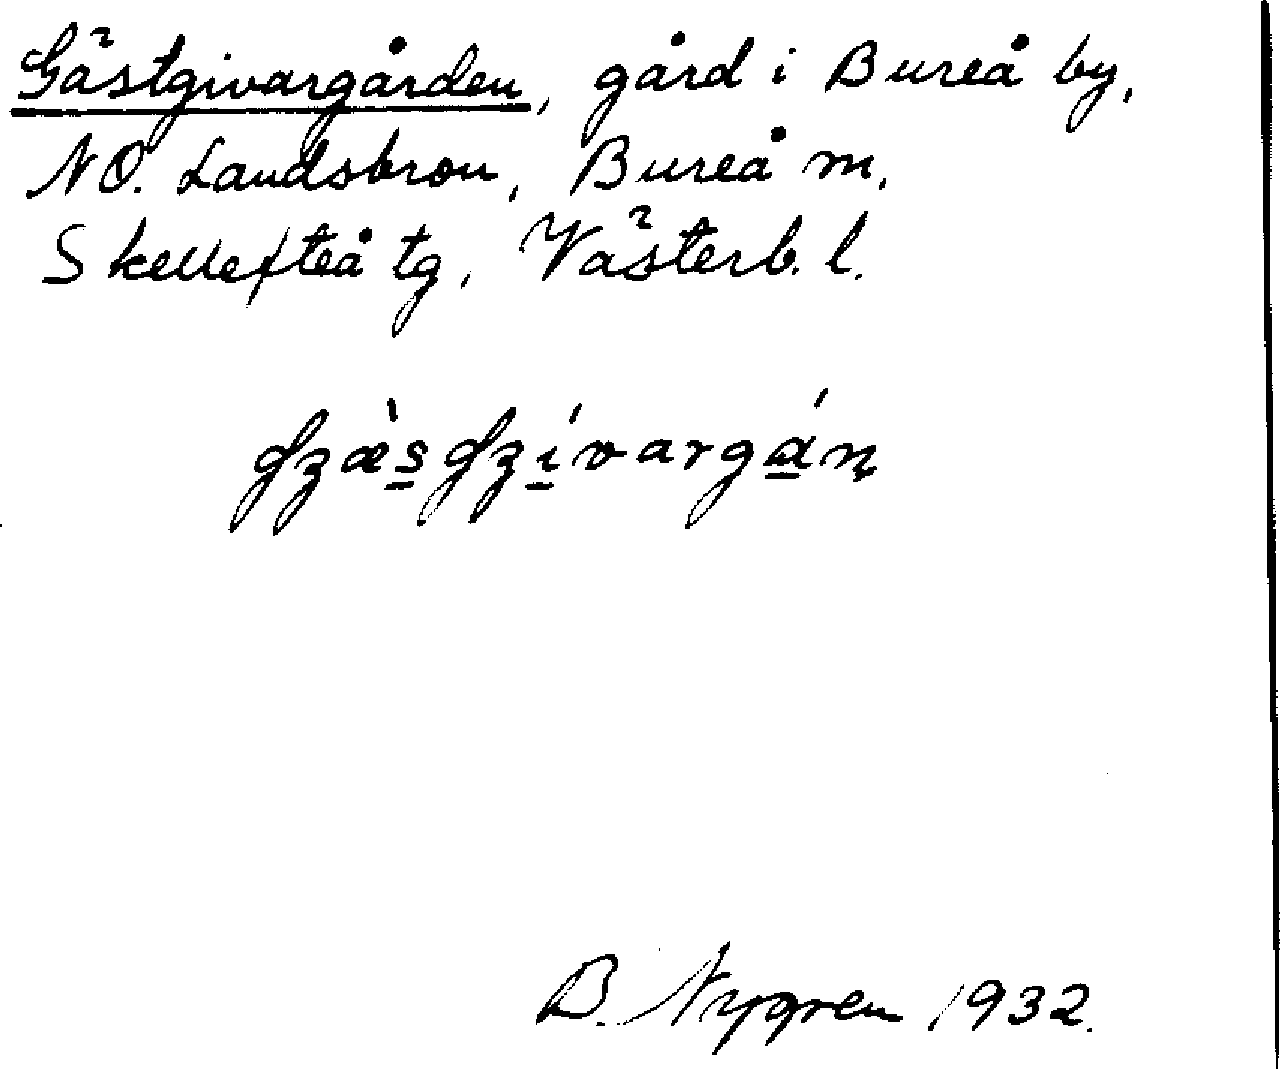 Gästgivargården, gård i Bureå by,
NO. Landsbron, Bureå m,
Skellefteå tg, Västerb. l.
B. Nygren 1932.